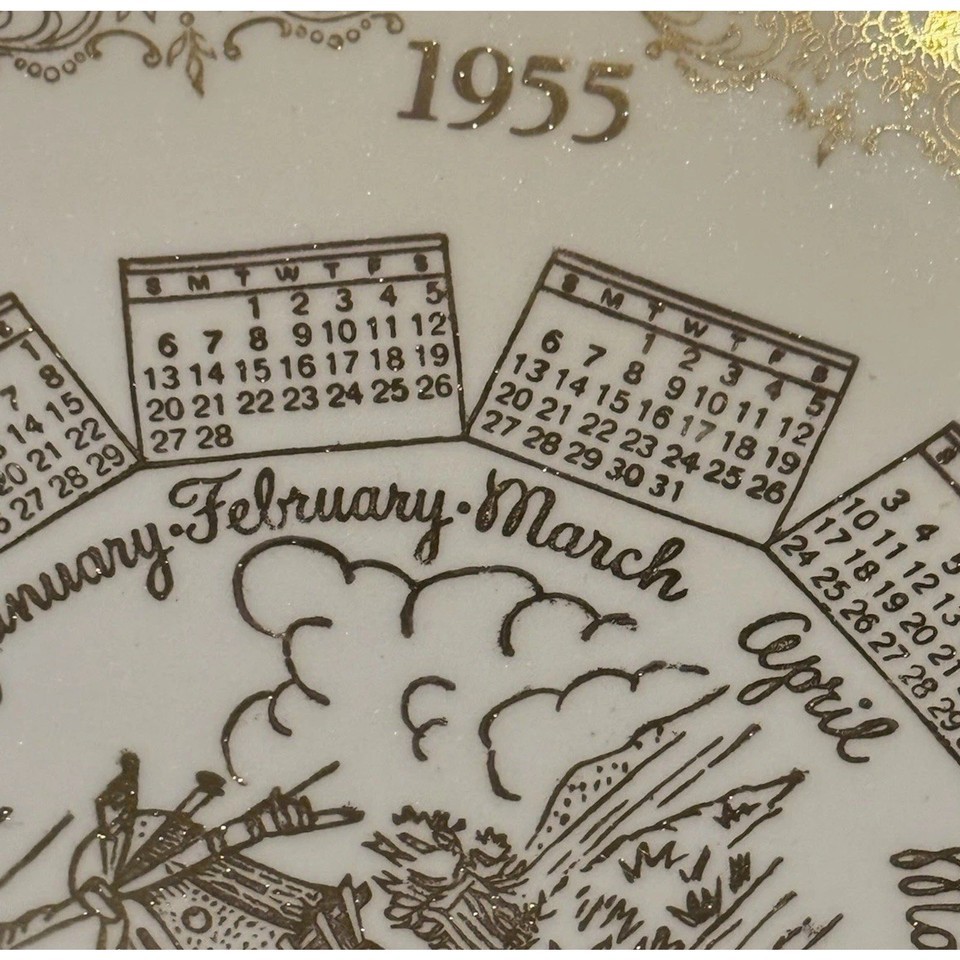 1955
1
7 8
14 15
20 21 22
27 28 29
S M T W T F S
1 2 3 4 5
6 7 8 9 10 11 12
13 14 15 16 17 18 19
20 21 22 23 24 25 26
27 28
S M T W T F S
1 2 3 4 5
6 7 8 9 10 11 12
13 14 15 16 17 18 19
20 21 22 23 24 25 26
27 28 29 30 31
S
3 4 5
10 11 12 13
17 18 19 20 21
24 25 26 27 28 29
anuary · February · March
April